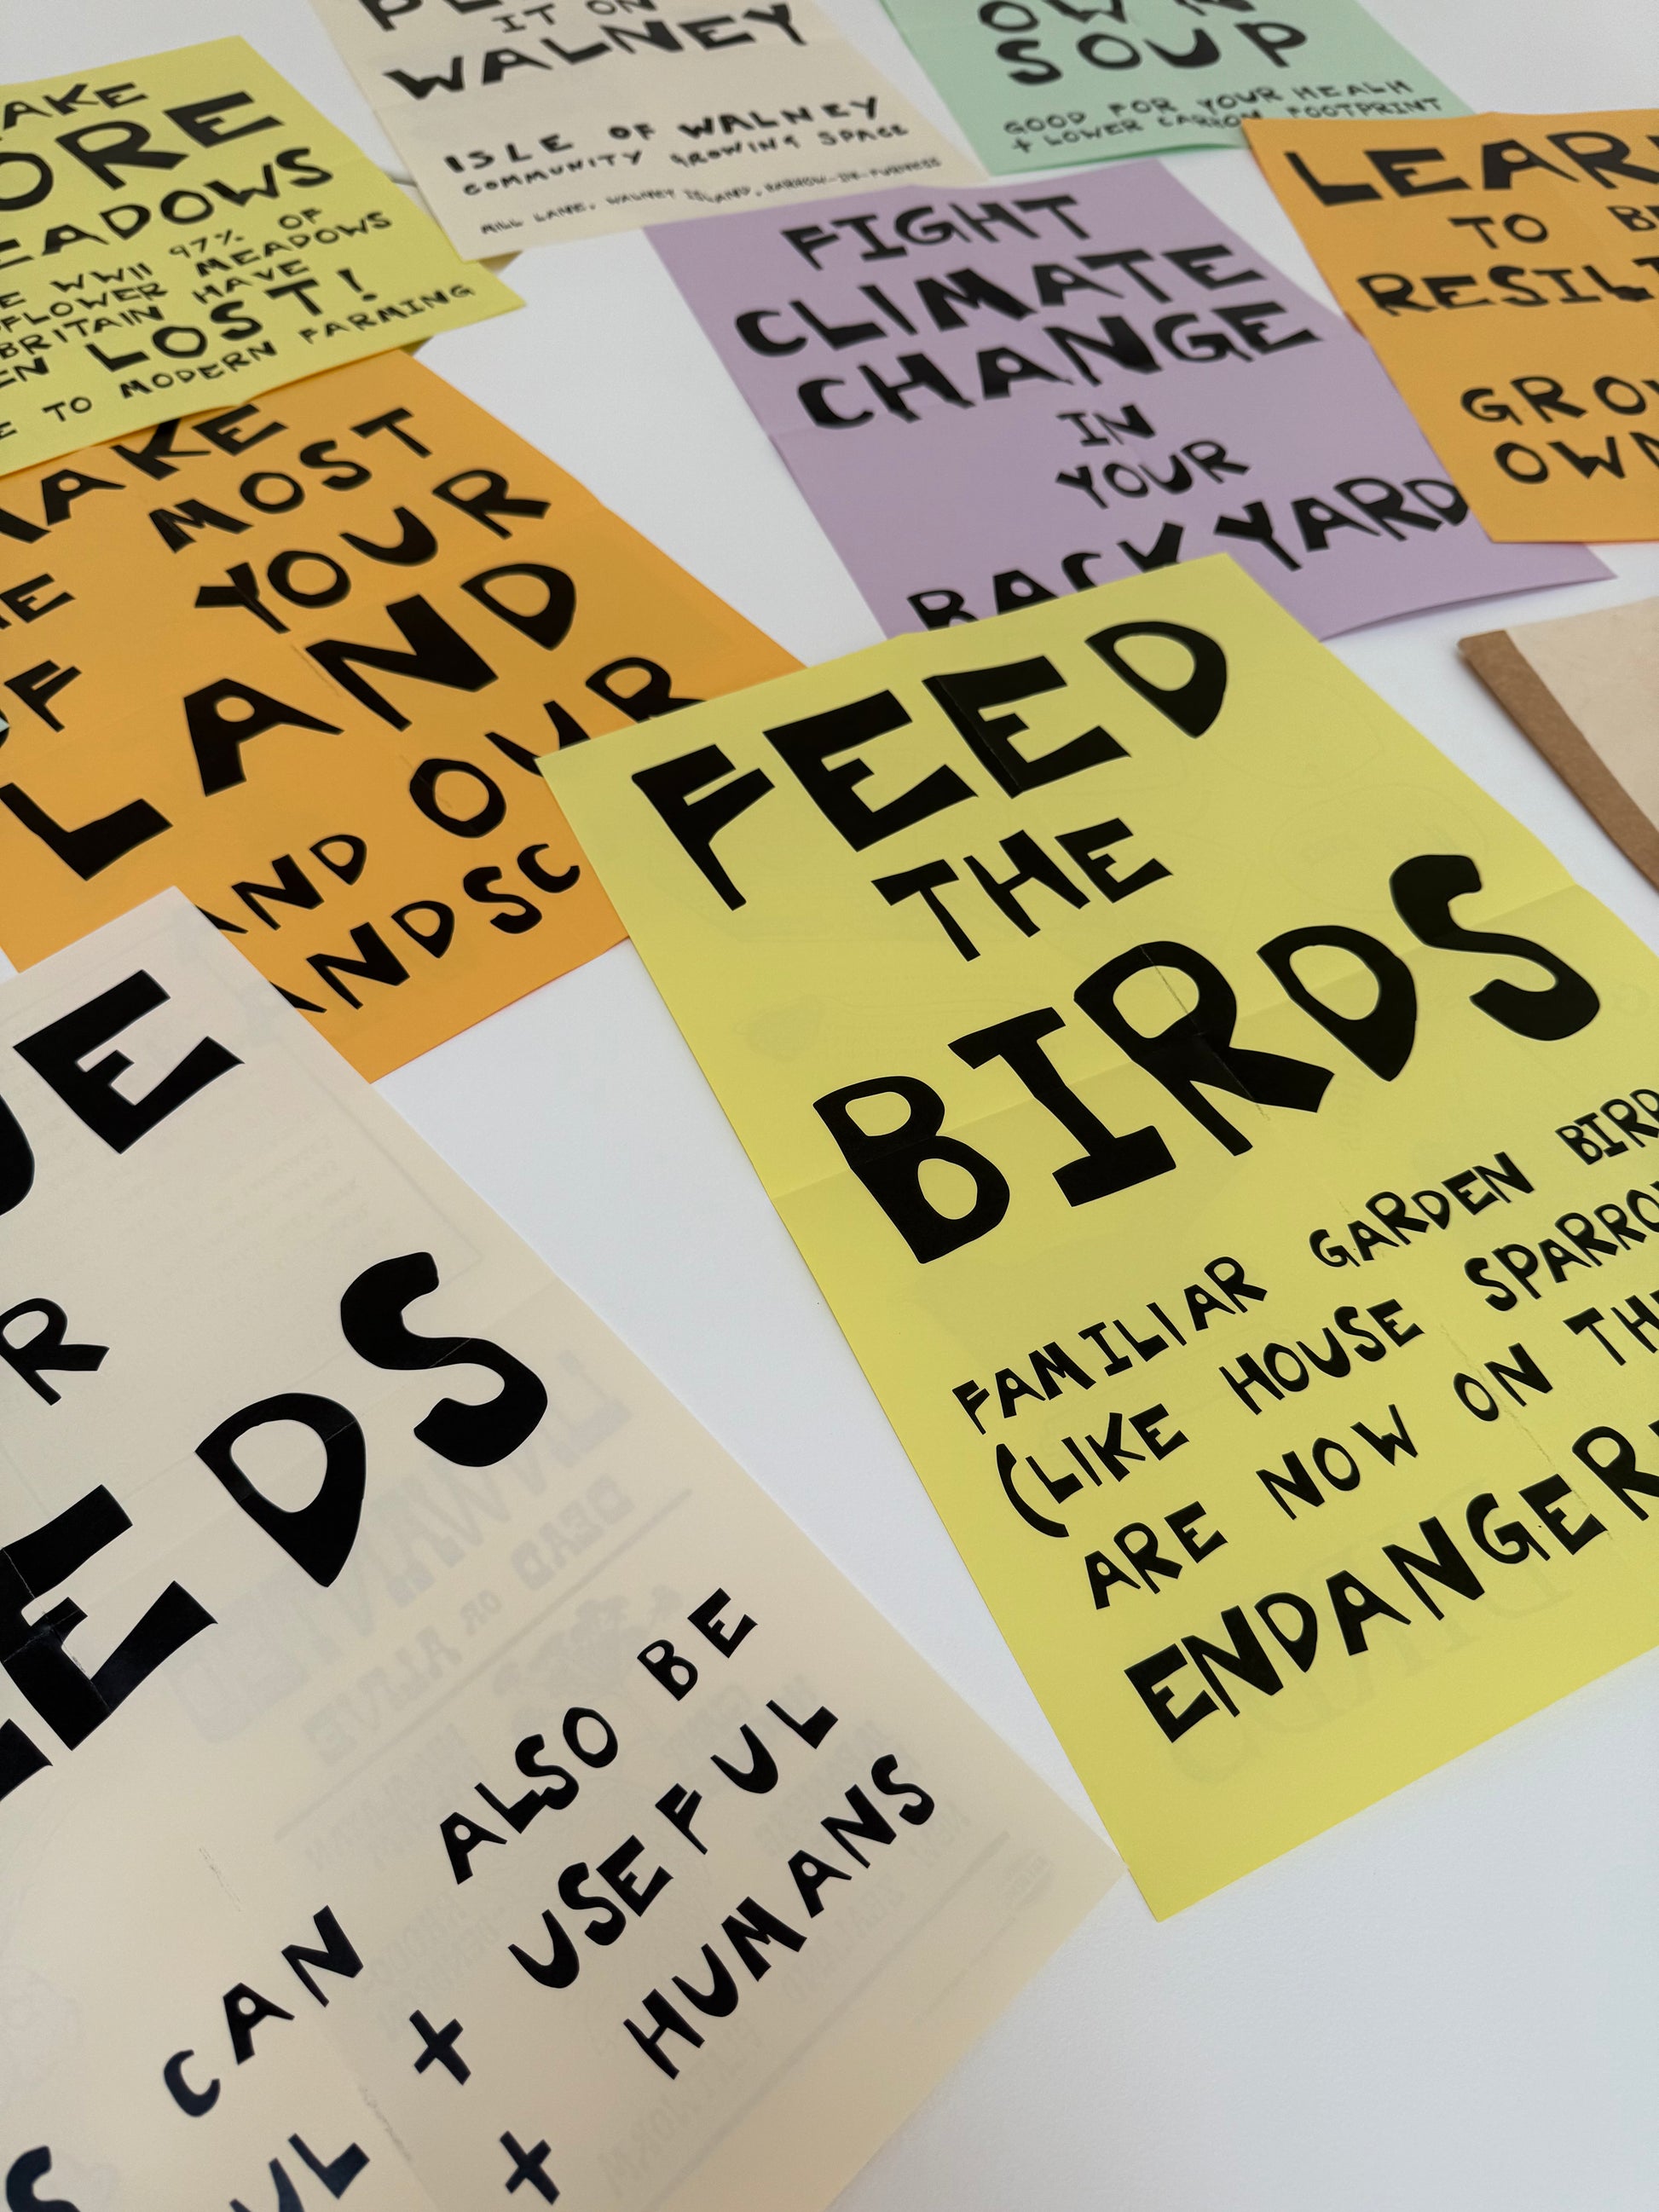 MAKE
MORE
MEADOWS
WWII 97% OF
FLOWER MEADOWS
BRITAIN HAVE
LOST!
TO MODERN FARMING
IT ON
WALNEY
ISLE OF WALNEY
COMMUNITY GROWING SPACE
MILL LANE, WALNEY ISLAND, BARROW-IN-FURNESS
OWN
SOUP
GOOD FOR YOUR HEALH
+ LOWER CARBON FOOTPRINT
FIGHT
CLIMATE
CHANGE
IN
YOUR
BACKYARD
LEAR
TO B
RESIL
GRO
OWN
MAKE
MOST
OF YOUR
LAND
AND OUR
ANDSC
FEED
THE
BIRDS
FAMILIAR GARDEN BIRD
(LIKE HOUSE SPARRO
ARE NOW ON THE
ENDANGER
UE
R
EEDS
CAN ALSO BE
+ USEFUL
+ HUMANS